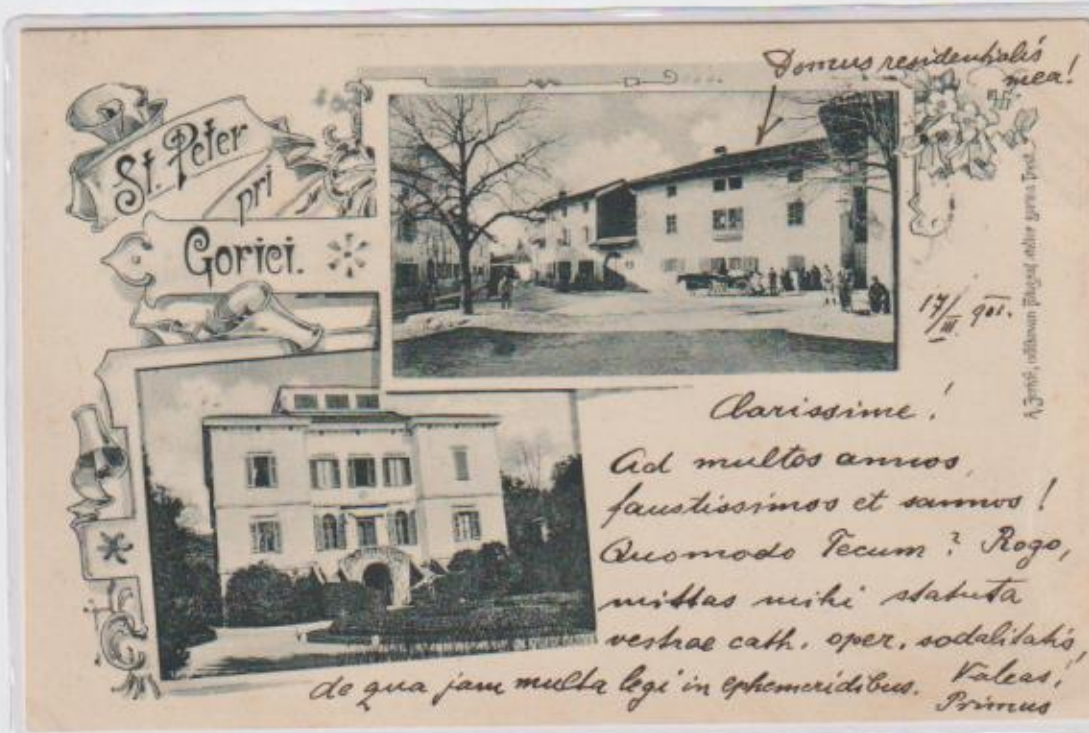 St. Peter
pri
Gorici.
Domus residentialis
mea!
17/III. 901.
Clarissime!
Ad multos annos
faustissimos et sannos!
Quomodo Tecum? Rogo,
mittas mihi statuta
vestrae cath. oper. sodalitatis,
de qua jam multa legi in ephemeridibus.
Valeas!
Primus